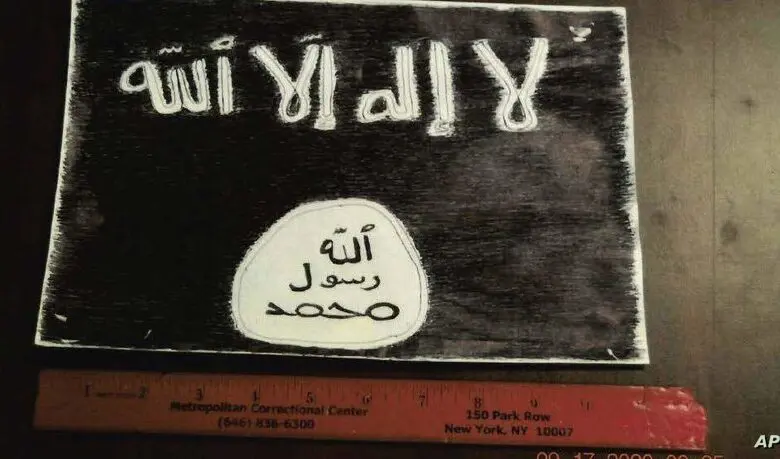 لا إله إلا الله
الله
رسول
محمد
1 2 3 4 5 6 7 8 9
Metropolitan Correctional Center
(646) 836-6300
150 Park Row
New York, NY 10007
AP